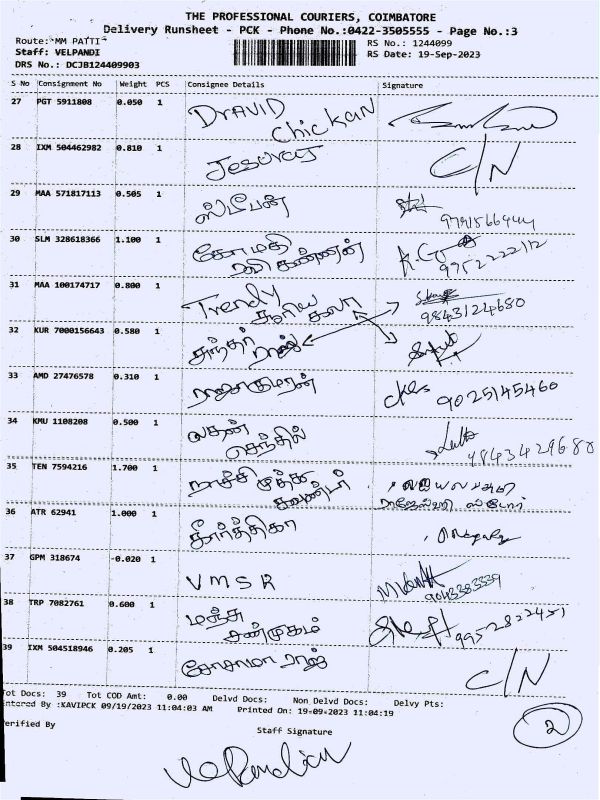 THE PROFESSIONAL COURIERS, COIMBATORE
Delivery Runsheet - PCK - Phone No.:0422-3505555 - Page No.:3
Route: MM PATTI
RS No.: 1244099
Staff: VELPANDI
RS Date: 19-Sep-2023
DRS No.: DCJB124409903
S No Consignment No Weight PCS Consignee Details Signature
27 PGT 5911808 0.050 1 DrAVID Chicken
28 IXM 504462982 0.810 1 Jesuraj C/N
29 MAA 571817113 0.505 1 ஸ்டீபன்
30 SLM 328618366 1.100 1 கோமதி கண்ணன் 9752222112
31 MAA 100174717 0.800 1 Trendy சூர்ய கலா 9843124680
32 KUR 7000156643 0.580 1 சுந்தர் ராஜ்
33 AMD 27476578 0.310 1 ராஜாகுமாரன் 9025145460
34 KMU 1108208 0.500 1 செந்தில் 9843429680
35 TEN 7594216 1.700 1 நாச்சிமுத்து கவுண்டர் ஸ்டோர்
36 ATR 62941 1.000 1 கீர்த்திகா
37 GPM 318674 -0.020 1 VMSR 9043383339
38 TRP 7082761 0.600 1 மஞ்சு சண்முகம் 9952822451
39 IXM 504518946 0.205 1 ராஜ் C/N
Tot Docs: 39 Tot COD Amt: 0.00 Delvd Docs: Non Delvd Docs: Delvy Pts:
Entered By :KAVIPCK 09/19/2023 11:04:03 AM Printed On: 19-09-2023 11:04:19
2
Verified By
Staff Signature
VelPandian